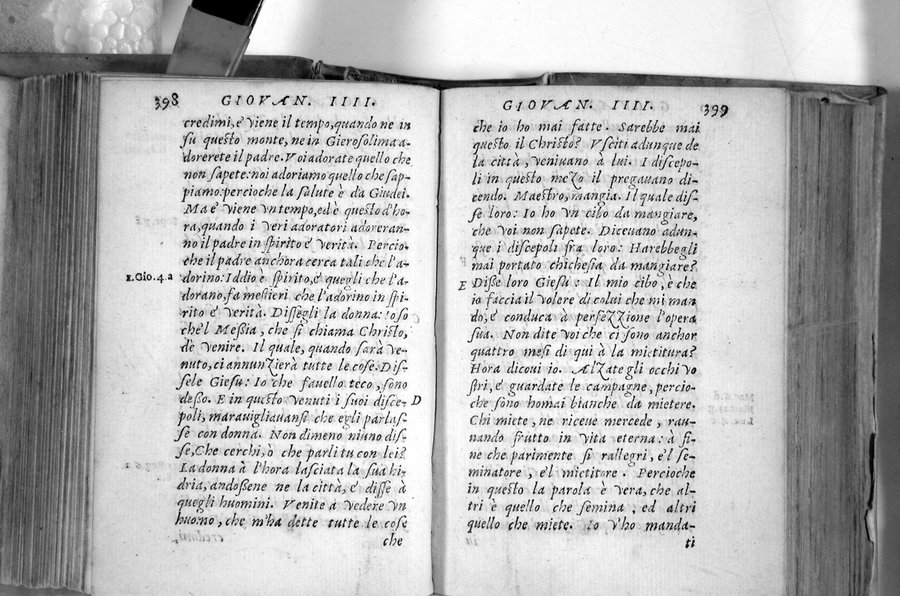 398 GIOVAN. IIII.
credimi, e viene il tempo, quando ne in
su questo monte, ne in Gierosolima a-
dorerete il padre. Voi adorate quello che
non sapete: noi adoriamo quello che sap-
piamo: percioche la salute è da Giudei.
Ma e' viene vn tempo, ed è questo d'ho
ra, quando i veri adoratori adoreran-
no il padre in spirito e verità. Percio-
che il padre anchora cerca tali che l'a-
1.Gio.4.a dorino: Iddio è spirito, e quegli che l'a-
dorano, fa mestieri che l'adorino in spi-
rito e verità. Dissegli la donna: Io so
che'l Messia, che si chiama Christo,
dè venire. Il quale, quando sarà ve-
nuto, ci annunzierà tutte le cose. Dis-
sele Giesu: Io che fauello teco, sono
desso. E in questo venuti i suoi disce- D
poli, marauigliauansi che egli parlas-
se con donna. Non dimeno niuno dis-
se, Che cerchi, ò che parli tu con lei?
La donna à l'hora lasciata la sua hi-
dria, andossene ne la città, e disse à
quegli huomini. Venite à vedere vn
huomo, che m'ha dette tutte le cose
che
GIOVAN. IIII. 399
che io ho mai fatte. Sarebbe mai
questo il Christo? Vsciti adunque de
la città, veniuano à lui. I discepo-
li in questo mezo il pregauano di-
cendo. Maestro, mangia. Il quale dis-
se loro: Io ho vn cibo da mangiare,
che voi non sapete. Diceuano adun-
que i discepoli fra loro: Harebbegli
mai portato chichesia da mangiare?
E Disse loro Giesu: Il mio cibo, e che
io faccia il volere di colui che mi man
dò, e conduca à perfezzione l'opera
sua. Non dite voi che ci sono anchor
quattro mesi di qui à la mietitura?
Hora dicoui io. Alzate gli occhi vo
stri, e guardate le campagne, percio-
che sono homai bianche da mietere.
Chi miete, ne riceue mercede, rau-
nando frutto in vita eterna: à fi-
ne che parimente si rallegri, e'l se-
minatore, e'l mietitore. Percioche
in questo la parola è vera, che al-
tri è quello che semina, ed altri
quello che miete. Io v'ho manda-
ti